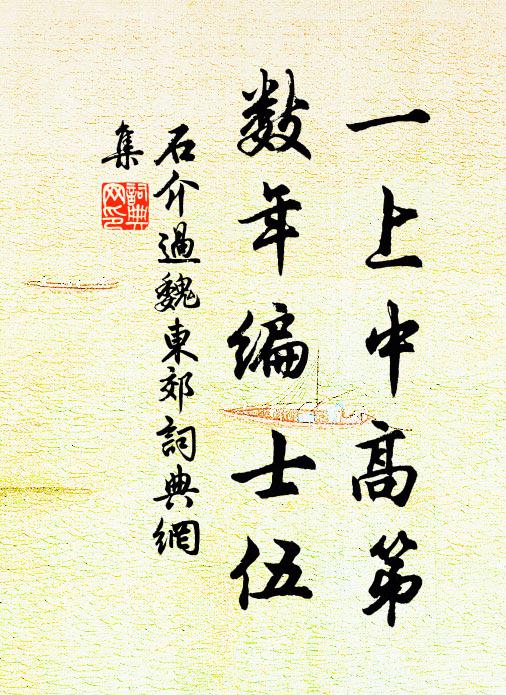 一上中高第
数年编士伍
石介過魏東郊詞典網
集
詞典
网印